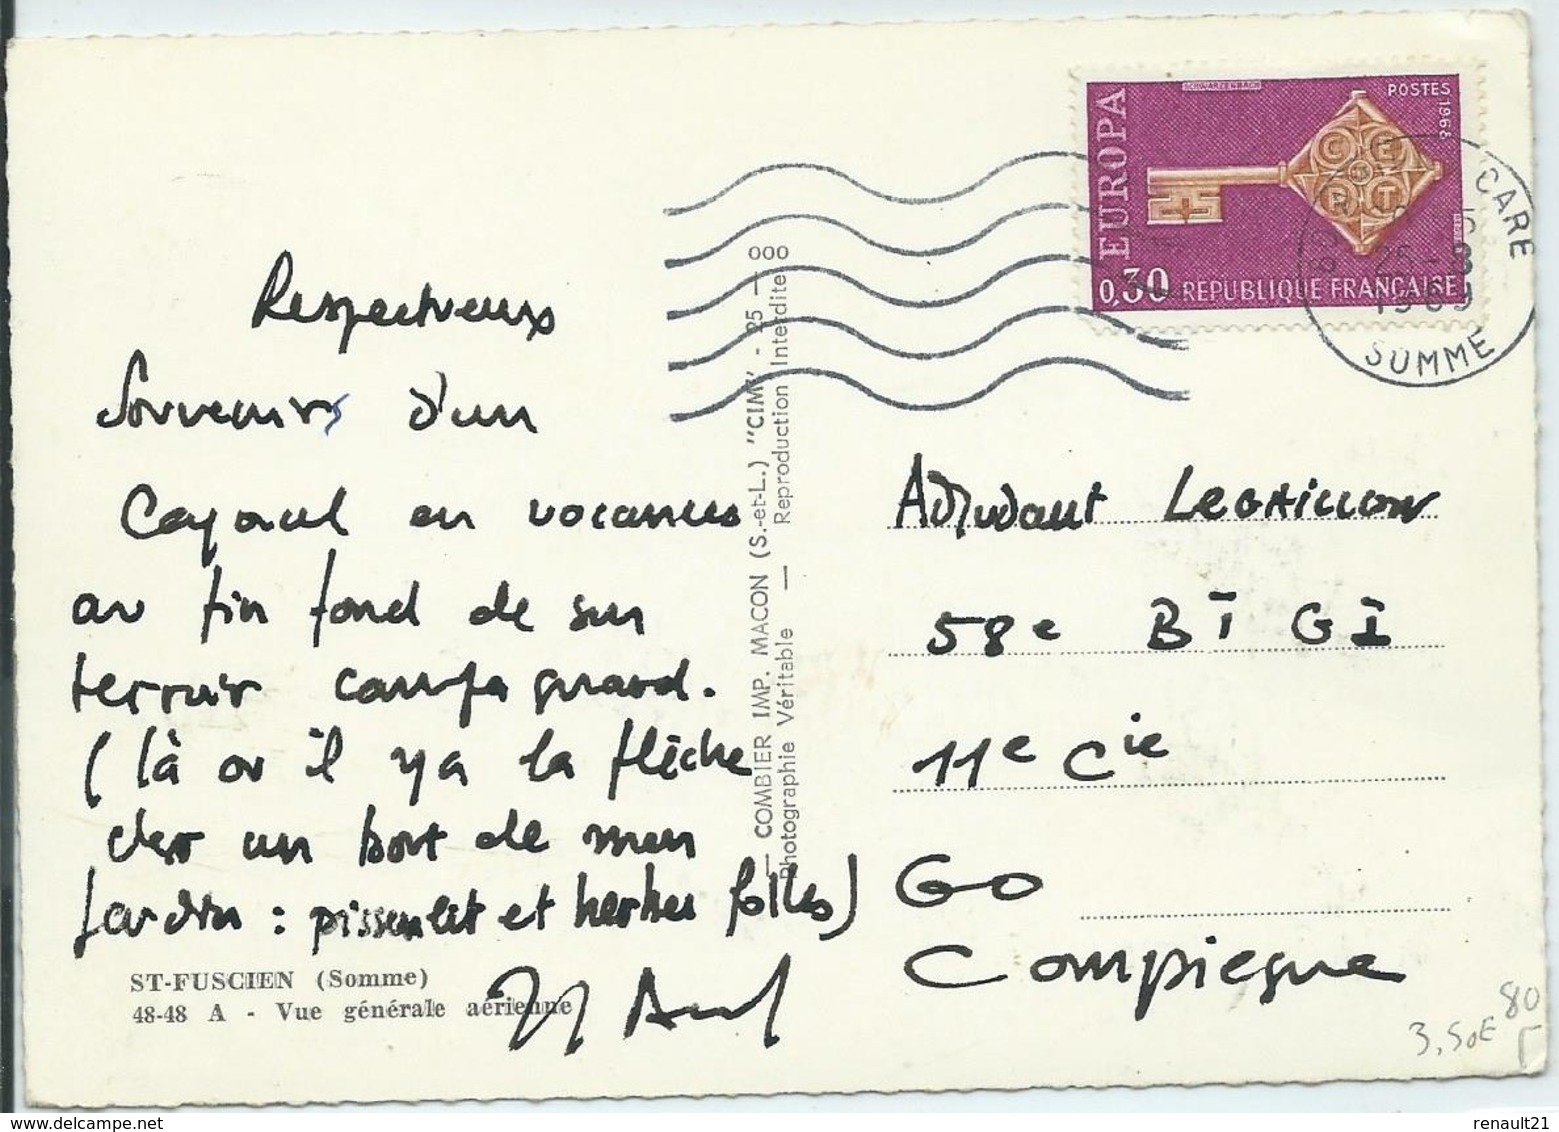 Respectueux
Souvenirs d'un
Caporal en vacances
au fin fond de sun
terroir campagnard.
(là ou il y a la flèche
der un bort de mun
Jardin : pissenlit et herbes folles)
ST-FUSCIEN (Somme)
48-48 A - Vue générale aérienne
— COMBIER IMP. MACON (S.-et-L.) "CIM" - 25 — ooo
Photographie Véritable — Reproduction Interdite
EUROPA
SCHWARZENBACH
POSTES 1968
CEPT
0,30 REPUBLIQUE FRANÇAISE
CARE
25-8
1969
SOMME
Adjudant LEGAILLON
58e BT GI
11e Cie
60
Compiegne
80
3,50E
renault21